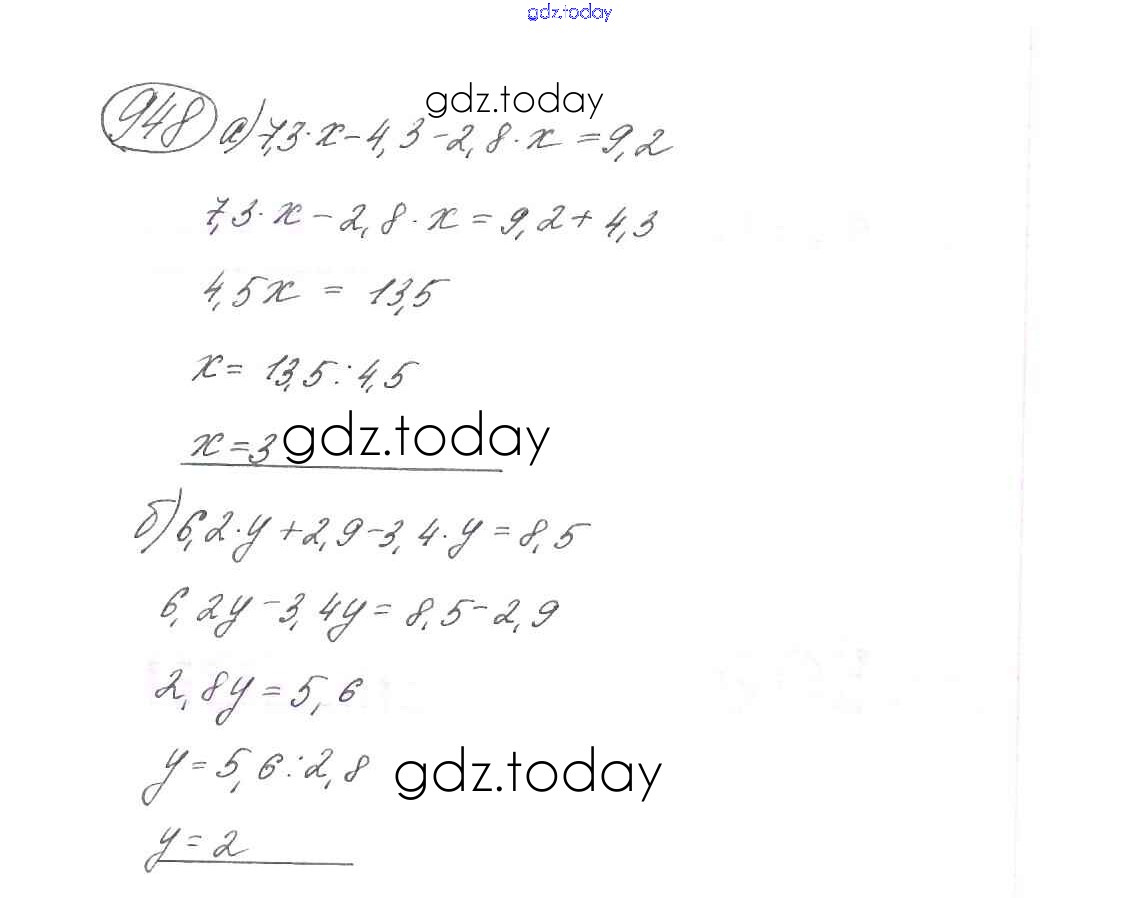 gdz.today
gdz.today
948 а) 7,3·x-4,3-2,8·x=9,2
7,3·x-2,8·x=9,2+4,3
4,5x = 13,5
x= 13,5:4,5
x=3 gdz.today
б) 6,2·y+2,9-3,4·y=8,5
6,2y-3,4y=8,5-2,9
2,8y=5,6
y=5,6:2,8 gdz.today
y=2